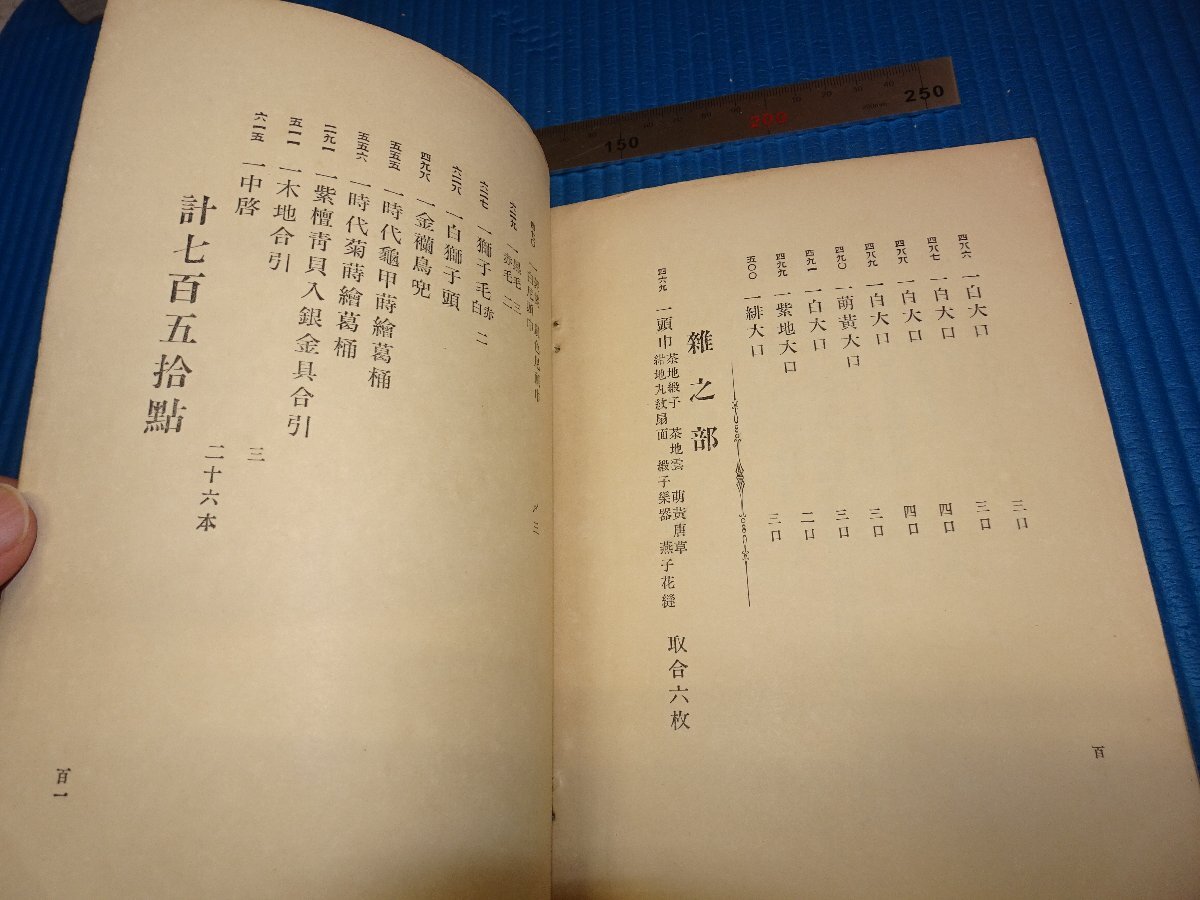 四八六 一白大口 三口
四八七 一白大口 三口
四八八 一白大口 四口
四八九 一白大口 四口
四九〇 一萌黃大口 三口
四九一 一白大口 三口
四九九 一紫地大口 二口
五〇〇 一緋大口 三口
雜之部
四六九 一頭巾 茶地緞子 茶地雲 萌黃唐草
紺地丸紋扇面 緞子樂器 燕子花縫 取合六枚
百
六二九 一黑毛 三
赤毛 二
六二七 一獅子毛 赤 白 二
六二八 一白獅子頭
四九八 一金襴鳥兜
五五五 一時代龜甲蒔繪葛桶
五五六 一時代菊蒔繪葛桶
二九一 一紫檀靑貝入銀金具合引
五一一 一木地合引 三
六一五 一中啓 二十六本
計七百五拾點
百一
150
200
250